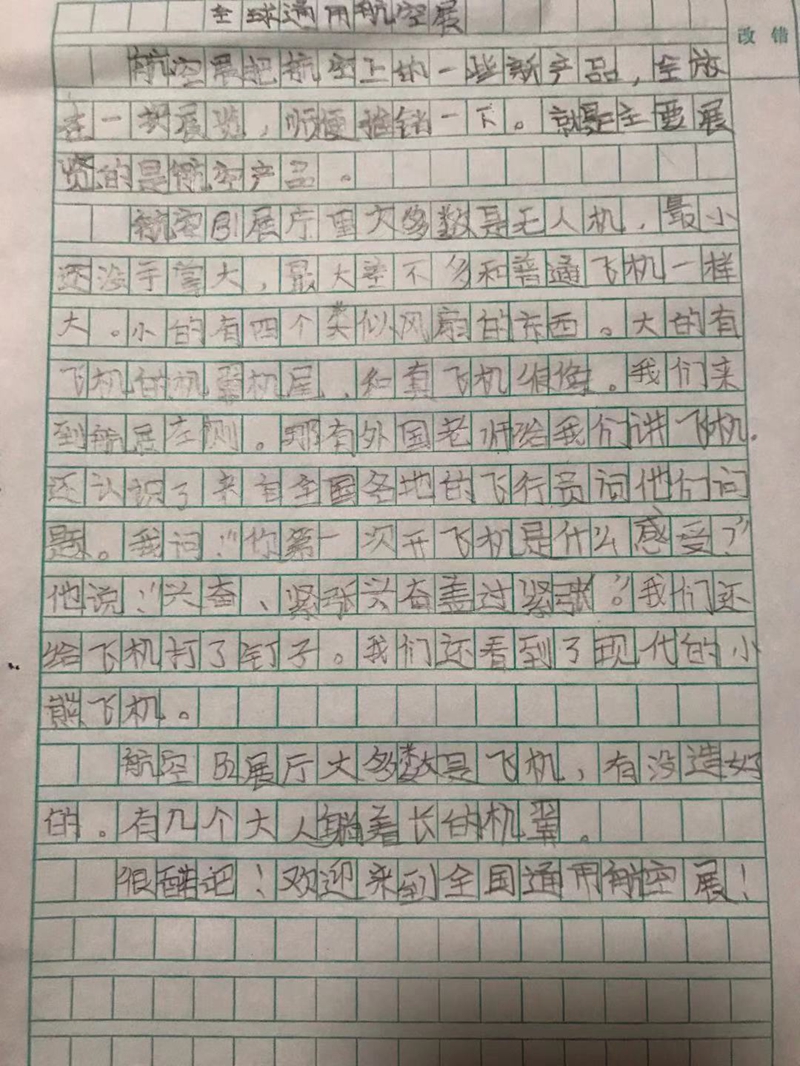 全球通用航空展
改错
航空展把航空上的一些新产品，全放
在一块展览，顺便推销一下。就是主要展
览的是航空产品。
航空B1展厅里大多数是无人机，最小
还没手掌大，最大差不多和普通飞机一样
大。小的有四个类似风扇的东西。大的有
飞机的机翼机尾，和真飞机很像。我们来
到航展左侧。那有外国老师给我们讲飞机.
还认识了来自全国各地的飞行员问他们问
题。我问：“你第一次开飞机是什么感受？”
他说：“兴奋、紧张兴奋盖过紧张”。我们还
给飞机打了钉子。我们还看到了现代的小
飞机。
航空B2展厅大多数是飞机，有没造好
的。有几个大人躺着长的机翼。
很酷吧！欢迎来到全国通用航空展！